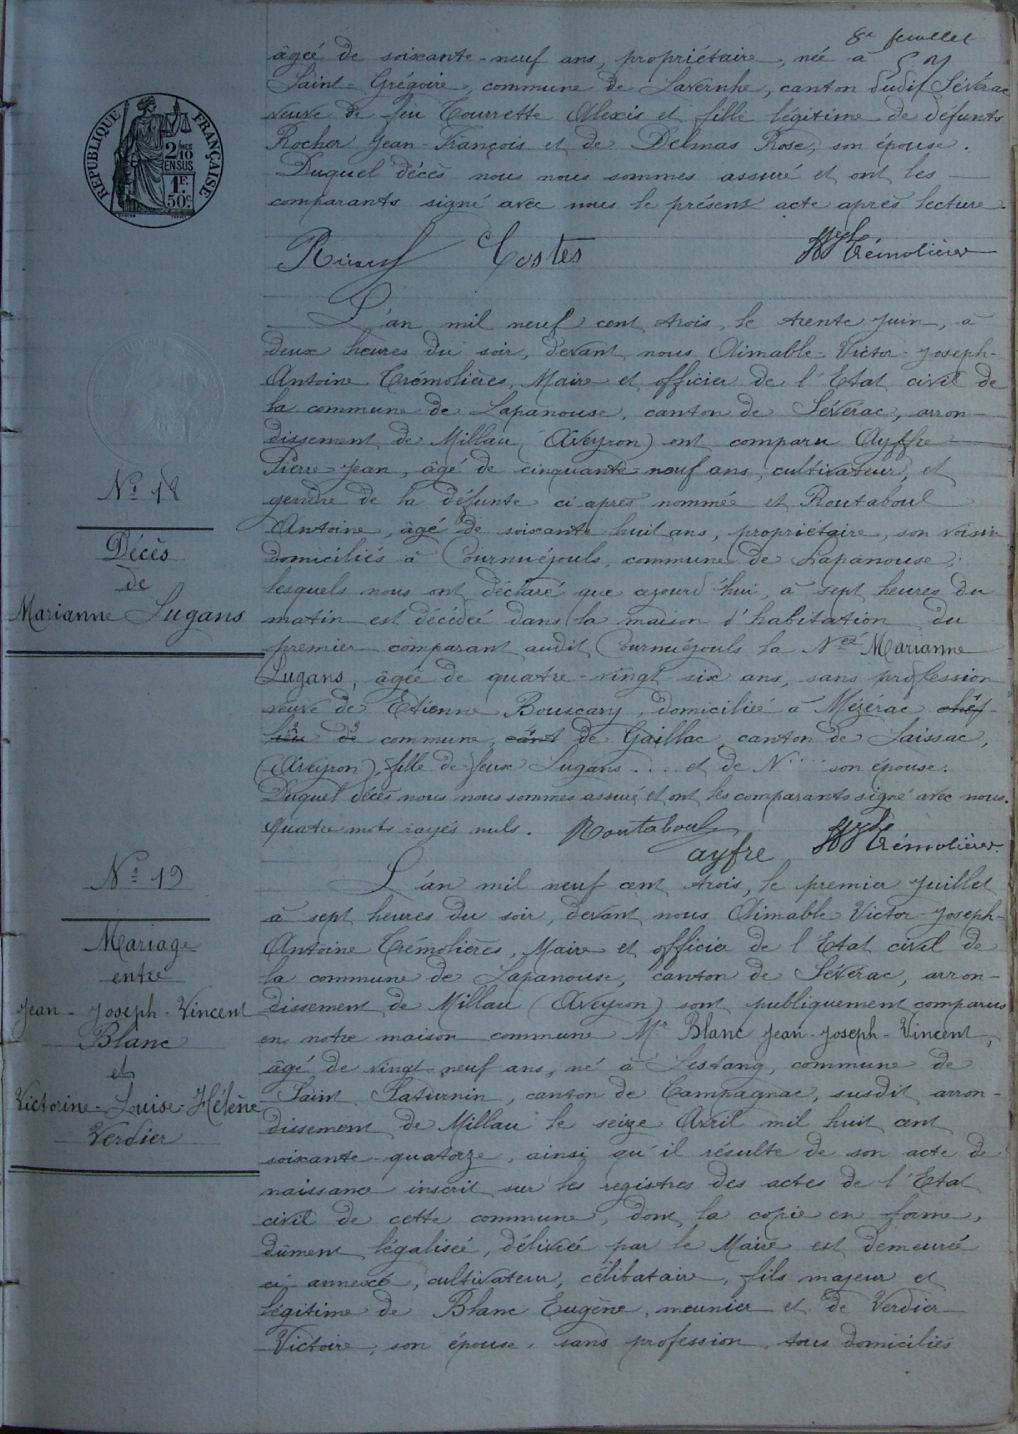 8e feuillet
âgée de soixante-neuf ans, propriétaire, née à
Saint-Grégoire, commune de Lavernhe, canton dudit Sévérac
veuve de feu Tourrette Alexis et fille légitime de défunts
Rocher Jean-François et de Delmas Rose, son épouse.
Duquel décès nous nous sommes assuré et ont les
comparants signé avec nous le présent acte après lecture.
Costes Trémolières
RÉPUBLIQUE FRANÇAISE
2/10
EN SUS
1F.
50c
L'an mil neuf cent trois, le trente juin, à
deux heures du soir, devant nous Aimable-Victor-Joseph-
Antoine Trémolières, Maire et officier de l'Etat civil de
la commune de Lapanouse, canton de Sévérac, arron-
dissement de Millau (Aveyron) ont comparu Ayffre
Pierre-Jean, âgé de cinquante neuf ans, cultivateur, et
gendre de la défunte ci-après nommée et Routaboul
Antoine, âgé de soixante-huit ans, propriétaire, son voisin
domiciliés à Cournuéjouls, commune de Lapanouse,
lesquels nous ont déclaré que cejourd'hui, à sept heures du
matin est décédée dans la maison d'habitation du
premier comparant audit Cournuéjouls la Née Marianne
Lugans, âgée de quatre-vingt-six ans, sans profession
veuve de Etienne Bouscary, domiciliée à Mézérac chef-
lieu de commune, cant de Gaillac, canton de Laissac,
(Aveyron), fille de feux Lugans .... et de N .... son épouse.
Duquel décès nous nous sommes assuré et ont les comparants signé avec nous.
Quatre mots rayés nuls. Routaboul Trémolières
ayfre
N° 18
Décès
de
Marianne Lugans
N° 19
Mariage
entre
Jean-Joseph-Vincent
Blanc
et
Victorine-Louise-Hélène
Verdier
L'an mil neuf cent trois, le premier juillet
à sept heures du soir, devant nous Aimable Victor-Joseph-
Antoine Trémolières, Maire et officier de l'Etat civil de
la commune de Lapanouse, canton de Sévérac, arron-
dissement de Millau (Aveyron) sont publiquement comparus
en notre maison commune Mr Blanc Jean-Joseph-Vincent,
âgé de vingt-neuf ans, né à Lestang, commune de
Saint Saturnin, canton de Campagnac, susdit arron-
dissement de Millau le seize Avril mil huit cent
soixante-quatorze, ainsi qu'il résulte de son acte de
naissance inscrit sur les registres des actes de l'Etat
civil de cette commune, dont la copie en forme,
dûment légalisée, délivrée par le Maire est demeurée
ci-annexée, cultivateur, célibataire, fils majeur et
légitime de Blanc Eugène, meunier et de Verdier
Victoire, son épouse, sans profession, tous domiciliés